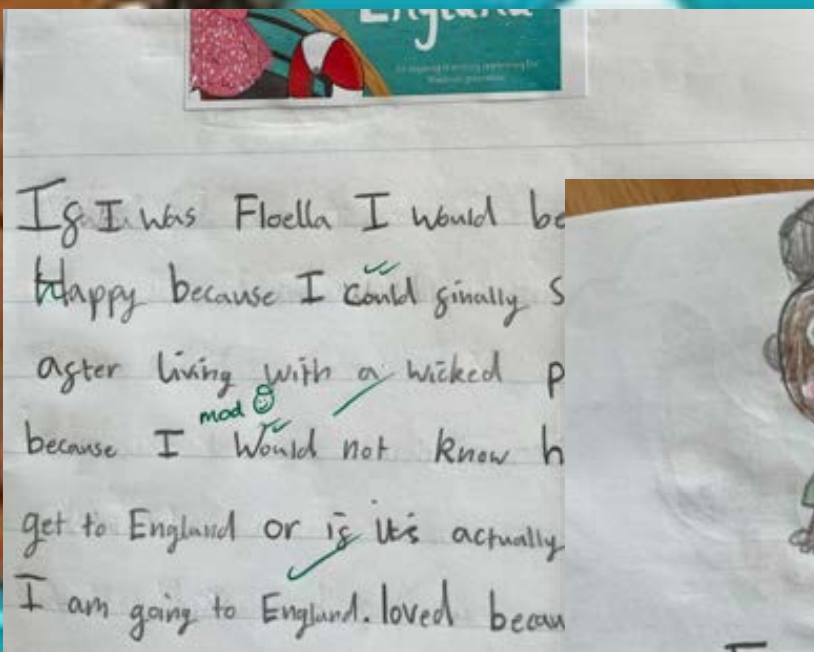 England
If I was Floella I would be
Happy because I could finally s
after living with a wicked p
mod
because I would not know h
get to England or if it's actually
I am going to England. loved becau
I